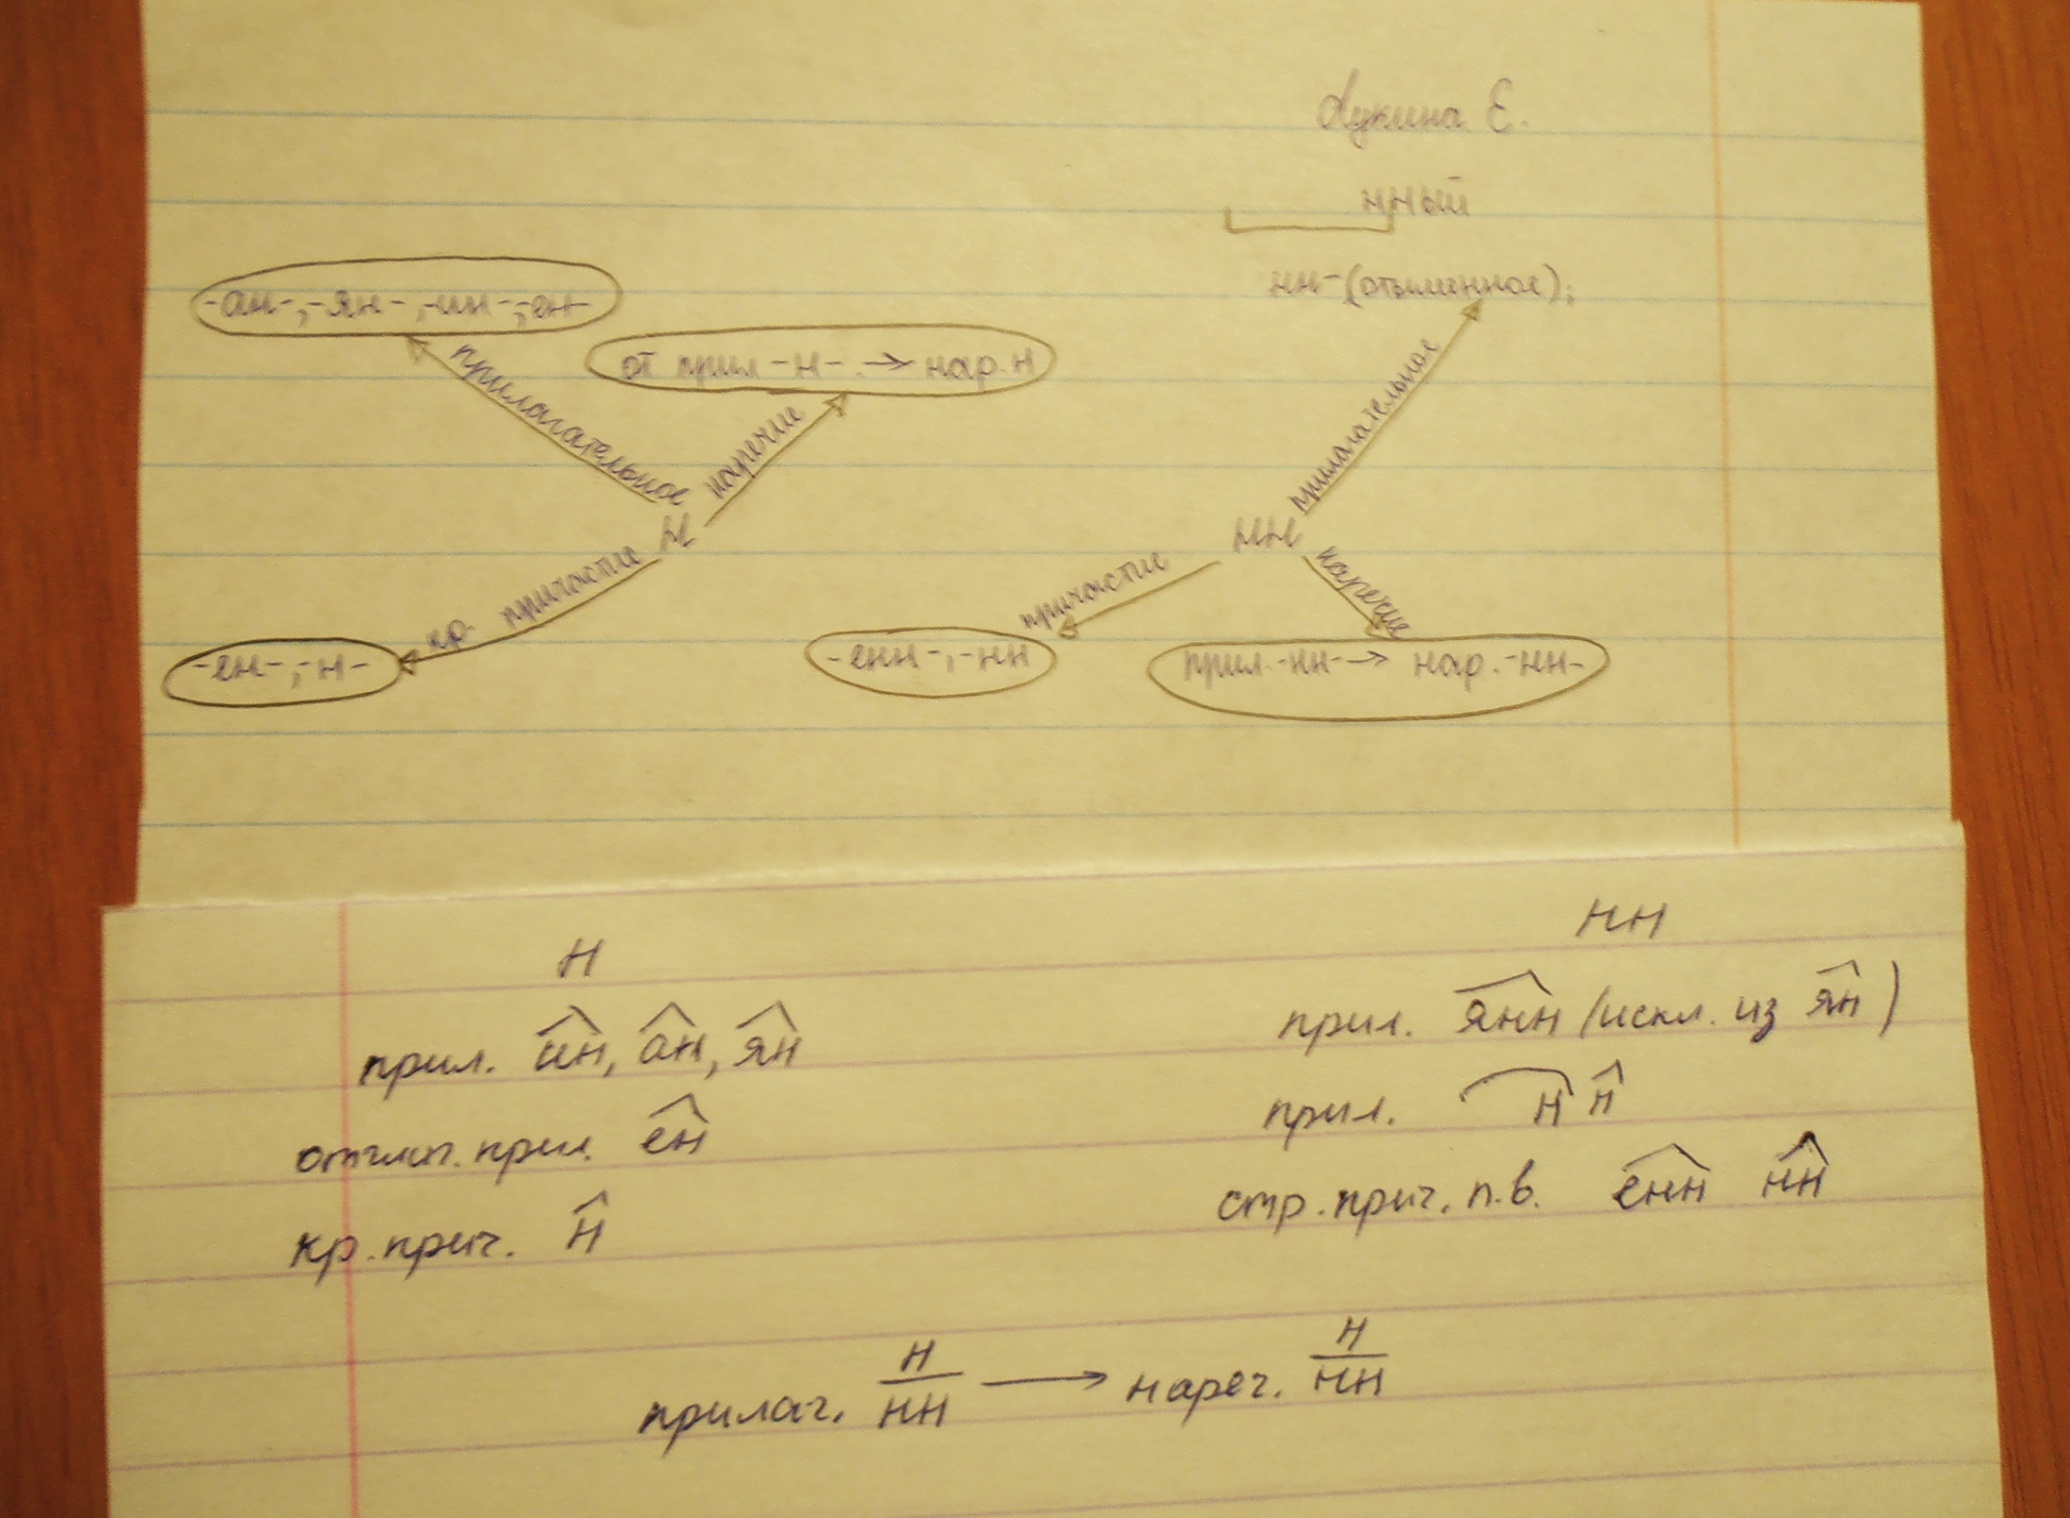 Лукина Е.
нный
нн-(отыменное);
-ан-,-ян-,-ин-,-ен-
от прил -н- → нар. н
прилагательное
наречие
прилагательное
н
нн
кр. причастие
причастие
наречие
-ен-,-н-
-енн-,-нн
прил.-нн-→ нар.-нн-
н
нн
прил. ин, ан, ян
прил. янн (искл. из ян)
отглаг. прил. ен
прил. н н
кр. прич. н
стр. прич. п.в. енн нн
н н
прилаг. нн → нареч. нн